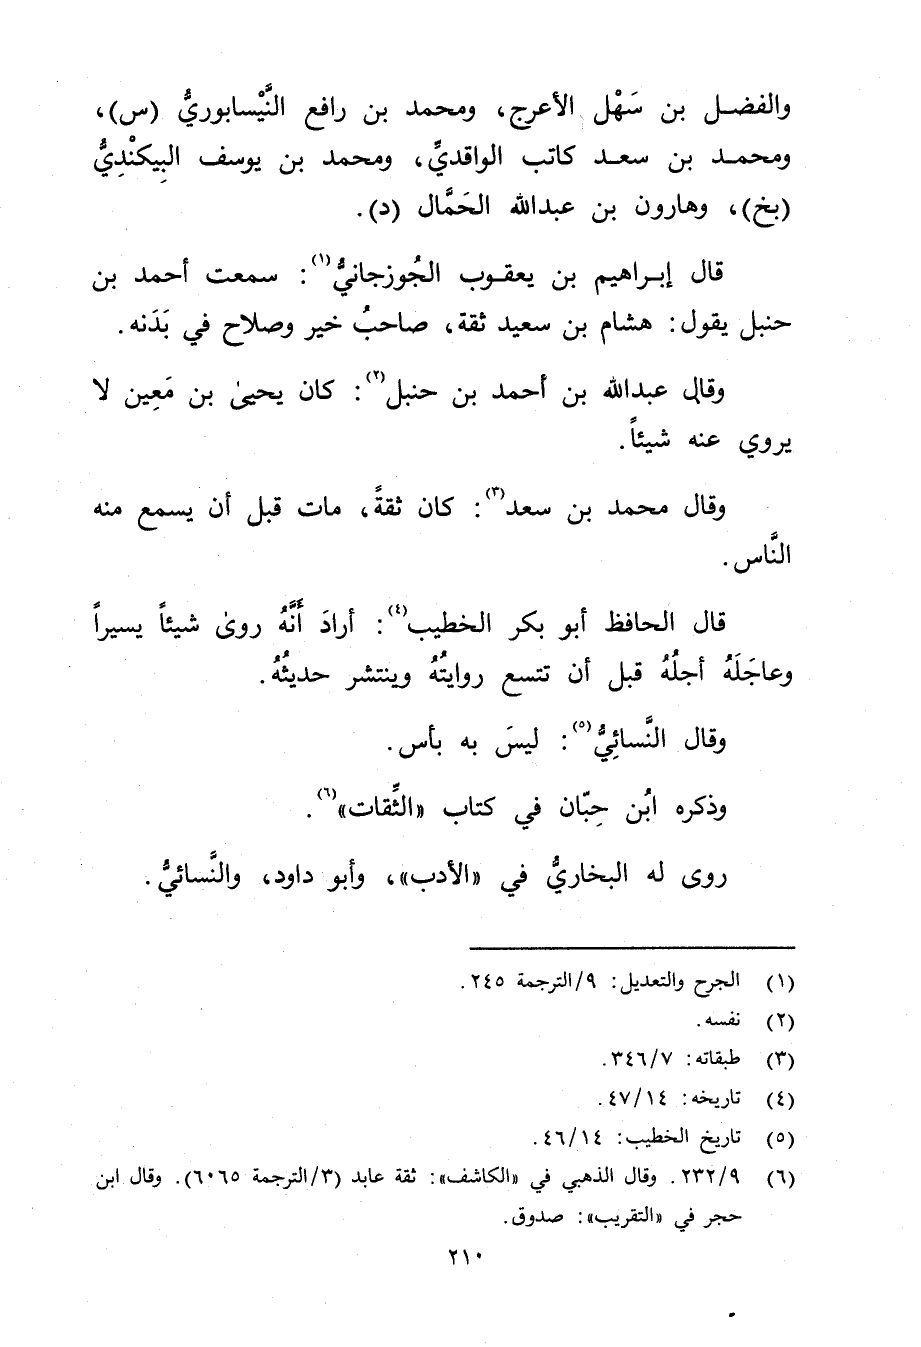 والفضل بن سَهْل الأعرج، ومحمد بن رافع النَّيْسابوريُّ (س)،
ومحمد بن سعد كاتب الواقديِّ، ومحمد بن يوسف البِيكنْدِيُّ
(بخ)، وهارون بن عبدالله الحَمَّال (د).
قال إبراهيم بن يعقوب الجُوزجانيُّ(١): سمعت أحمد بن
حنبل يقول: هشام بن سعيد ثقة، صاحبُ خير وصلاح في بَدَنه.
وقال عبدالله بن أحمد بن حنبل(٢): كان يحيىٰ بن مَعِين لا
يروي عنه شيئاً.
وقال محمد بن سعد(٣): كان ثقةً، مات قبل أن يسمع منه
النَّاس.
قال الحافظ أبو بكر الخطيب(٤): أرادَ أَنَّهُ روىٰ شيئاً يسيراً
وعاجَلَهُ أجلُهُ قبل أن تتسع روايتُهُ وينتشر حديثُهُ.
وقال النَّسائِيُّ(٥): ليسَ به بأس.
وذكره ابُن حِبّان في كتاب «الثِّقات»(٦).
روى له البخاريُّ في «الأدب»، وأبو داود، والنَّسائيُّ.
(١) الجرح والتعديل: ٩/الترجمة ٢٤٥.
(٢) نفسه.
(٣) طبقاته: ٣٤٦/٧.
(٤) تاريخه: ٤٧/١٤.
(٥) تاريخ الخطيب: ٤٦/١٤.
(٦) ٢٣٢/٩. وقال الذهبي في «الكاشف»: ثقة عابد (٣/الترجمة ٦٠٦٥). وقال ابن
حجر في «التقريب»: صدوق.
٢١٠